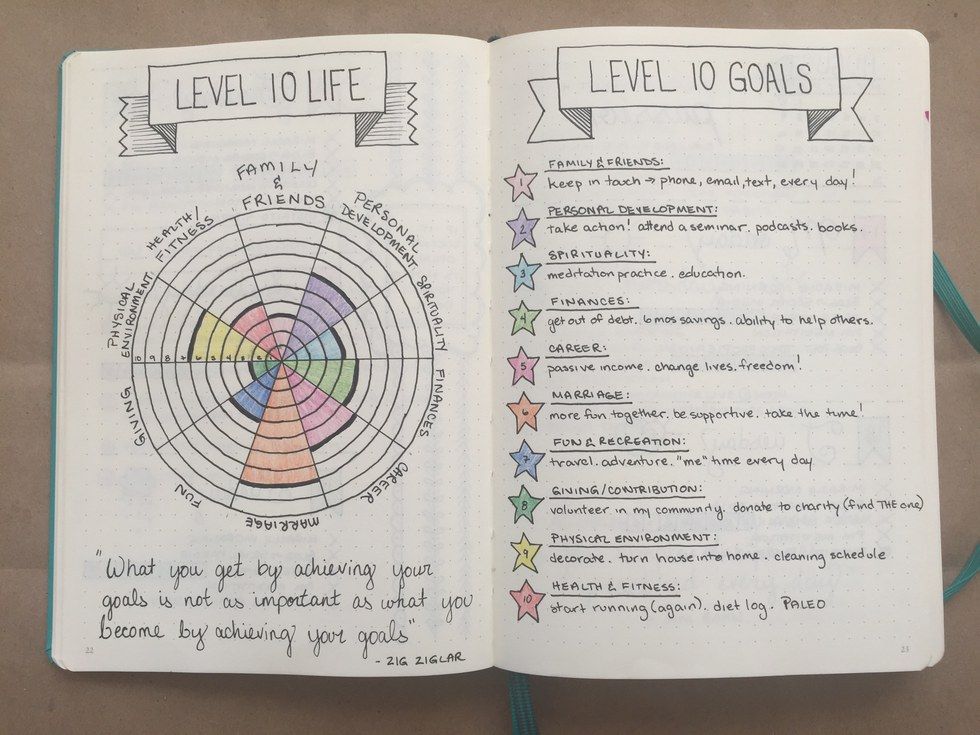 LEVEL 10 LIFE
FAMILY
&
FRIENDS
PERSONAL
DEVELOPMENT
SPIRITUALITY
FINANCES
CAREER
MARRIAGE
FUN
GIVING
PHYSICAL
ENVIRONMENT
HEALTH/
FITNESS
10 9 8 7 6 5 4 3 2
"What you get by achieving your
goals is not as important as what you
become by achieving your goals"
- ZIG ZIGLAR
22
LEVEL 10 GOALS
1 FAMILY & FRIENDS:
keep in touch → phone, email, text, every day!
2 PERSONAL DEVELOPMENT:
take action! attend a seminar. podcasts. books.
3 SPIRITUALITY:
meditation practice. education.
4 FINANCES:
get out of debt. 6 mos savings. ability to help others.
5 CAREER:
passive income. change lives. freedom!
6 MARRIAGE:
more fun together. be supportive. take the time!
7 FUN & RECREATION:
travel. adventure. "me" time every day
8 GIVING/CONTRIBUTION:
volunteer in my community. donate to charity (find THE one)
9 PHYSICAL ENVIRONMENT:
decorate. turn house into home. cleaning schedule
10 HEALTH & FITNESS:
start running (again). diet log. PALEO
23